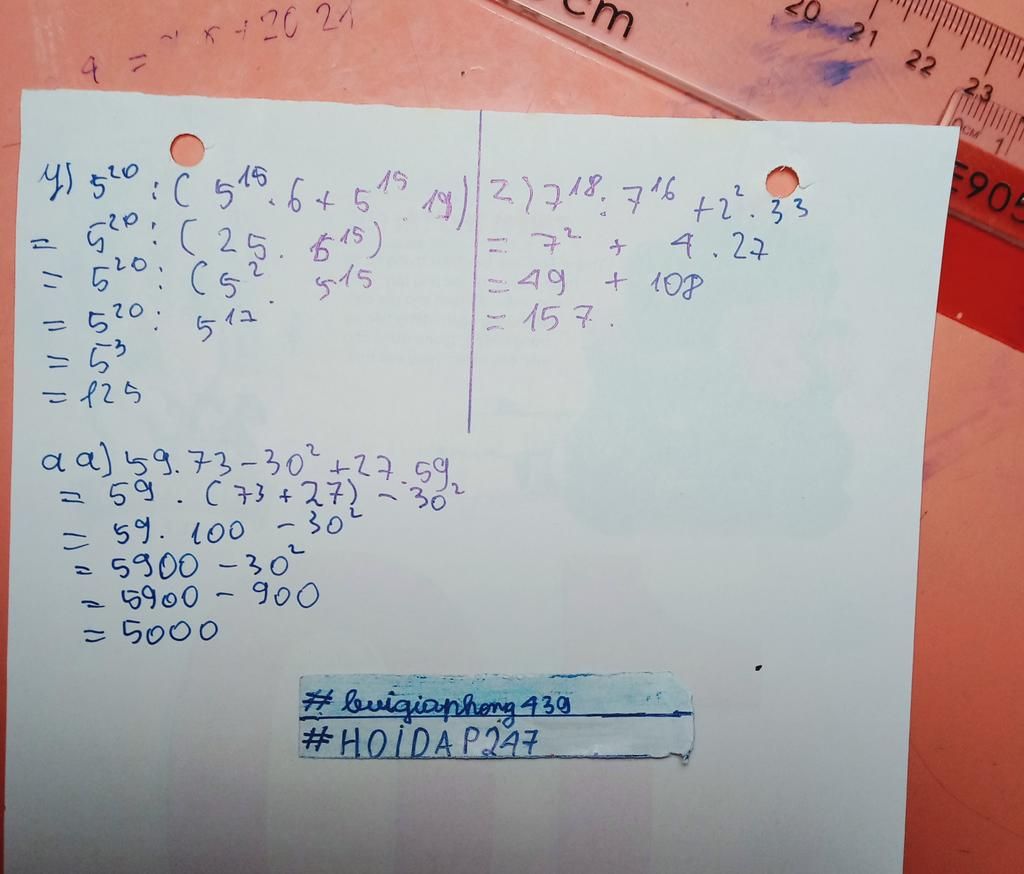 cm
20 21 22 23
0CM 1
E905
y) 5²⁰ : ( 5¹⁵ . 6 + 5¹⁵ . 19)
= 5²⁰ : ( 25 . 5¹⁵)
= 5²⁰ : (5² . 5¹⁵
= 5²⁰ : 5¹⁷
= 5³
= 125
z) 7¹⁸ : 7¹⁶ + 2² . 3³
= 7² + 4 . 27
= 49 + 108
= 157.
a a) 59.73 - 30² + 27.59
= 59 . (73 + 27) - 30²
= 59 . 100 - 30²
= 5900 - 30²
= 5900 - 900
= 5000
# buigiaphong439
# HOIDAP247